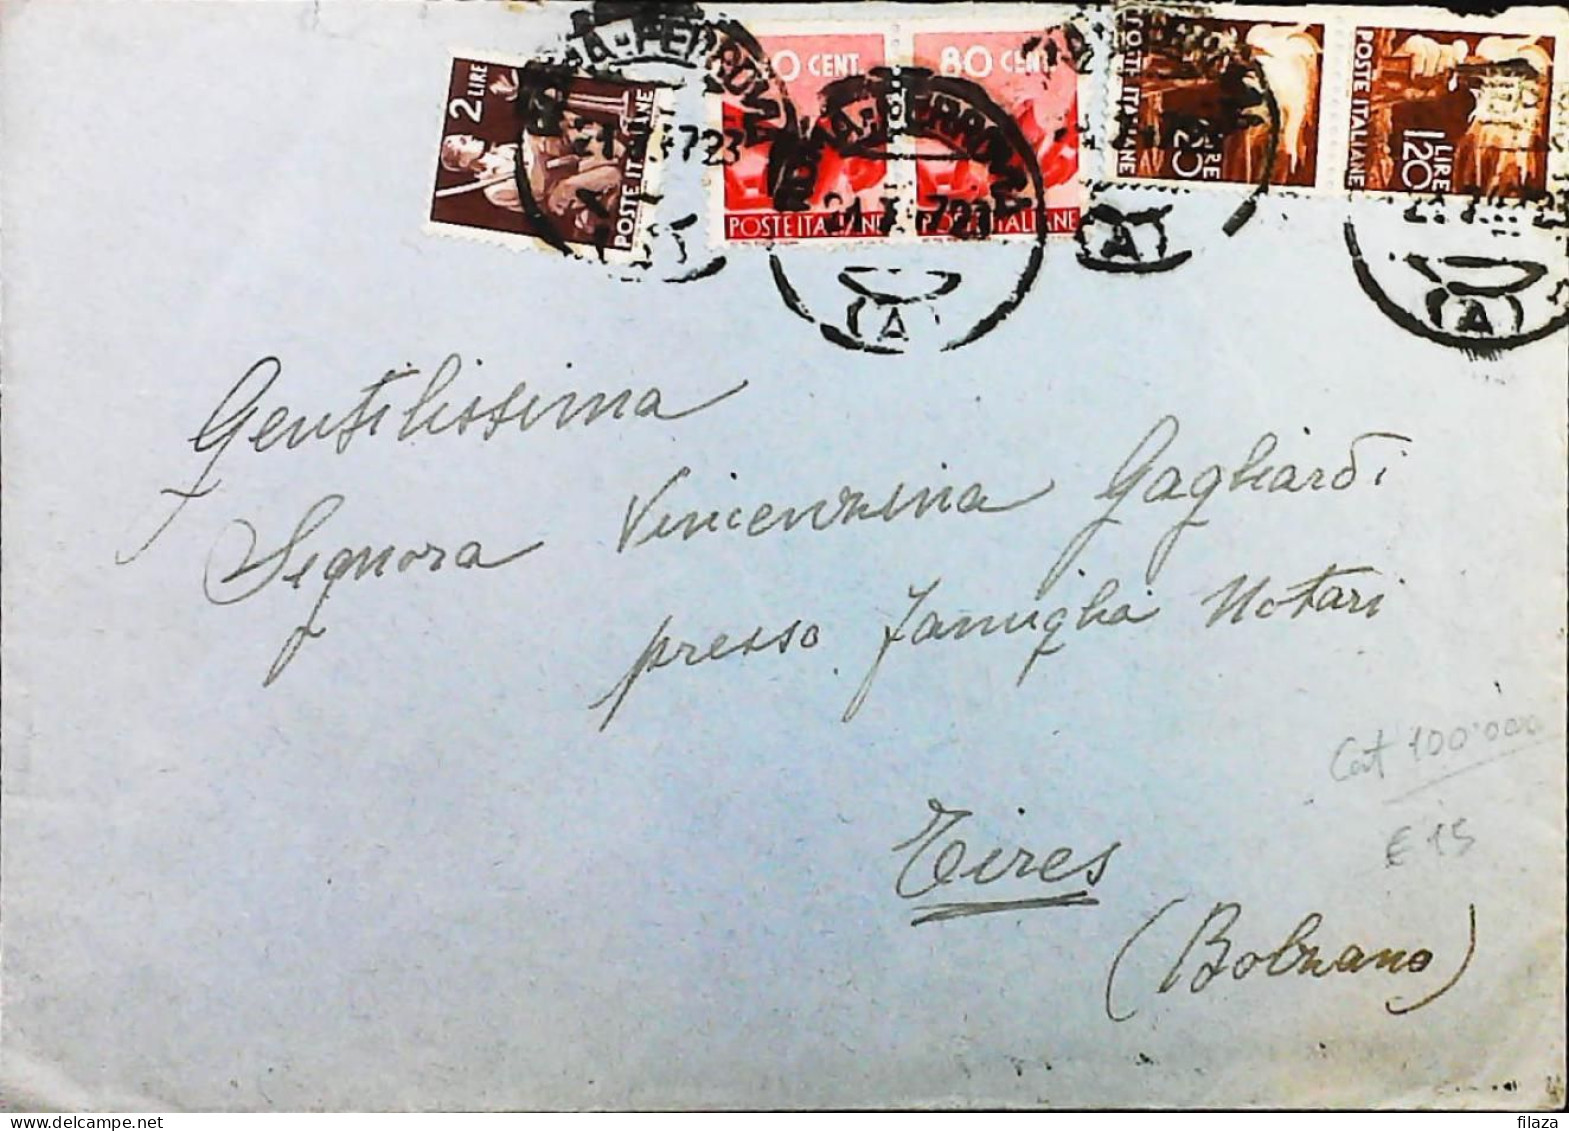 2 LIRE
POSTE ITALIANE
0 CENT.
POSTE ITALIANE
80 CENT.
POSTE ITALIANE
POSTE ITALIANE
1,20 LIRE
POSTE ITALIANE
1,20 LIRE
(A)
(A)
(A)
Gentilissima
Signora Vincenzina Gagliardi
presso famiglia Notari
Cat 100.000
€ 15
Tires
(Bolzano)
filaza